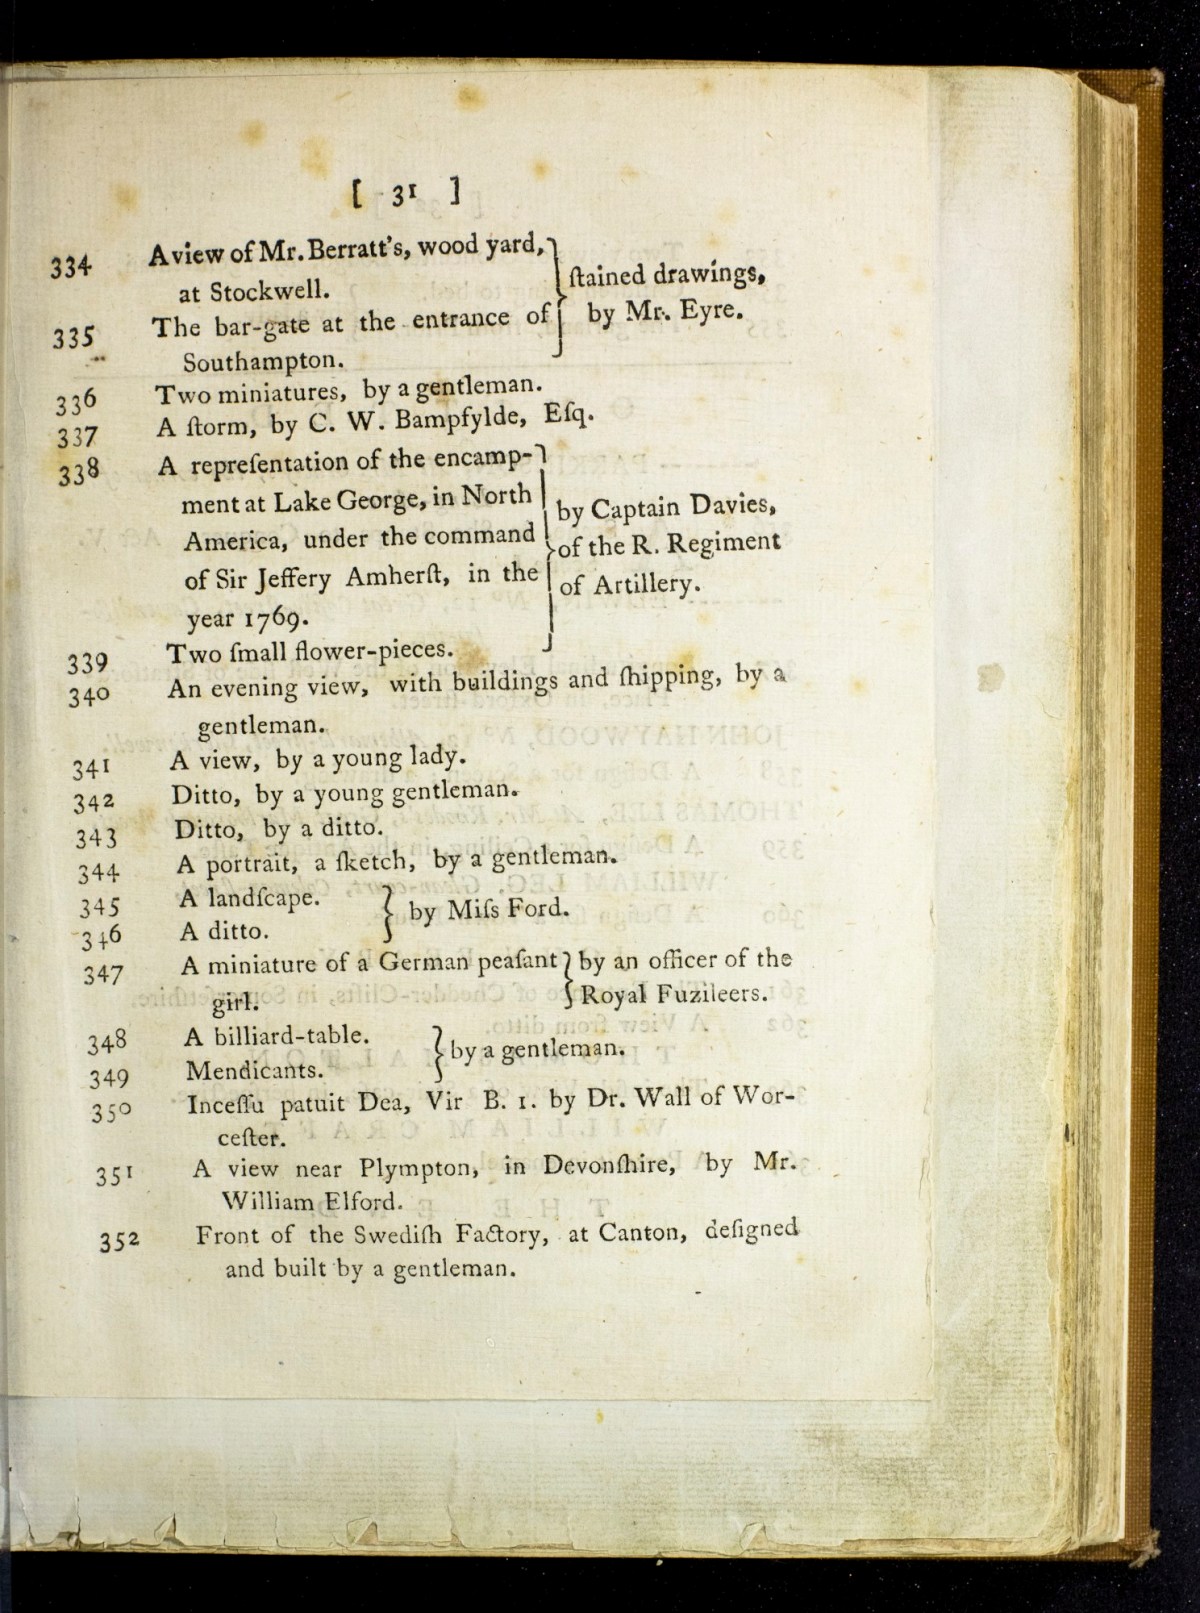 [ 31 ]
334 A view of Mr. Berratt's, wood yard, } ſtained drawings,
at Stockwell.
335 The bar-gate at the entrance of } by Mr. Eyre.
Southampton.
336 Two miniatures, by a gentleman.
337 A ſtorm, by C. W. Bampfylde, Eſq.
338 A repreſentation of the encamp-
ment at Lake George, in North } by Captain Davies,
America, under the command } of the R. Regiment
of Sir Jeffery Amherſt, in the } of Artillery.
year 1769.
339 Two ſmall flower-pieces.
340 An evening view, with buildings and ſhipping, by a
gentleman.
341 A view, by a young lady.
342 Ditto, by a young gentleman.
343 Ditto, by a ditto.
344 A portrait, a ſketch, by a gentleman.
345 A landſcape. } by Miſs Ford.
346 A ditto.
347 A miniature of a German peaſant } by an officer of the
girl. } Royal Fuzileers.
348 A billiard-table. } by a gentleman.
349 Mendicants.
350 Inceſſu patuit Dea, Vir B. 1. by Dr. Wall of Wor-
ceſter.
351 A view near Plympton, in Devonſhire, by Mr.
William Elford.
352 Front of the Swediſh Factory, at Canton, deſigned
and built by a gentleman.